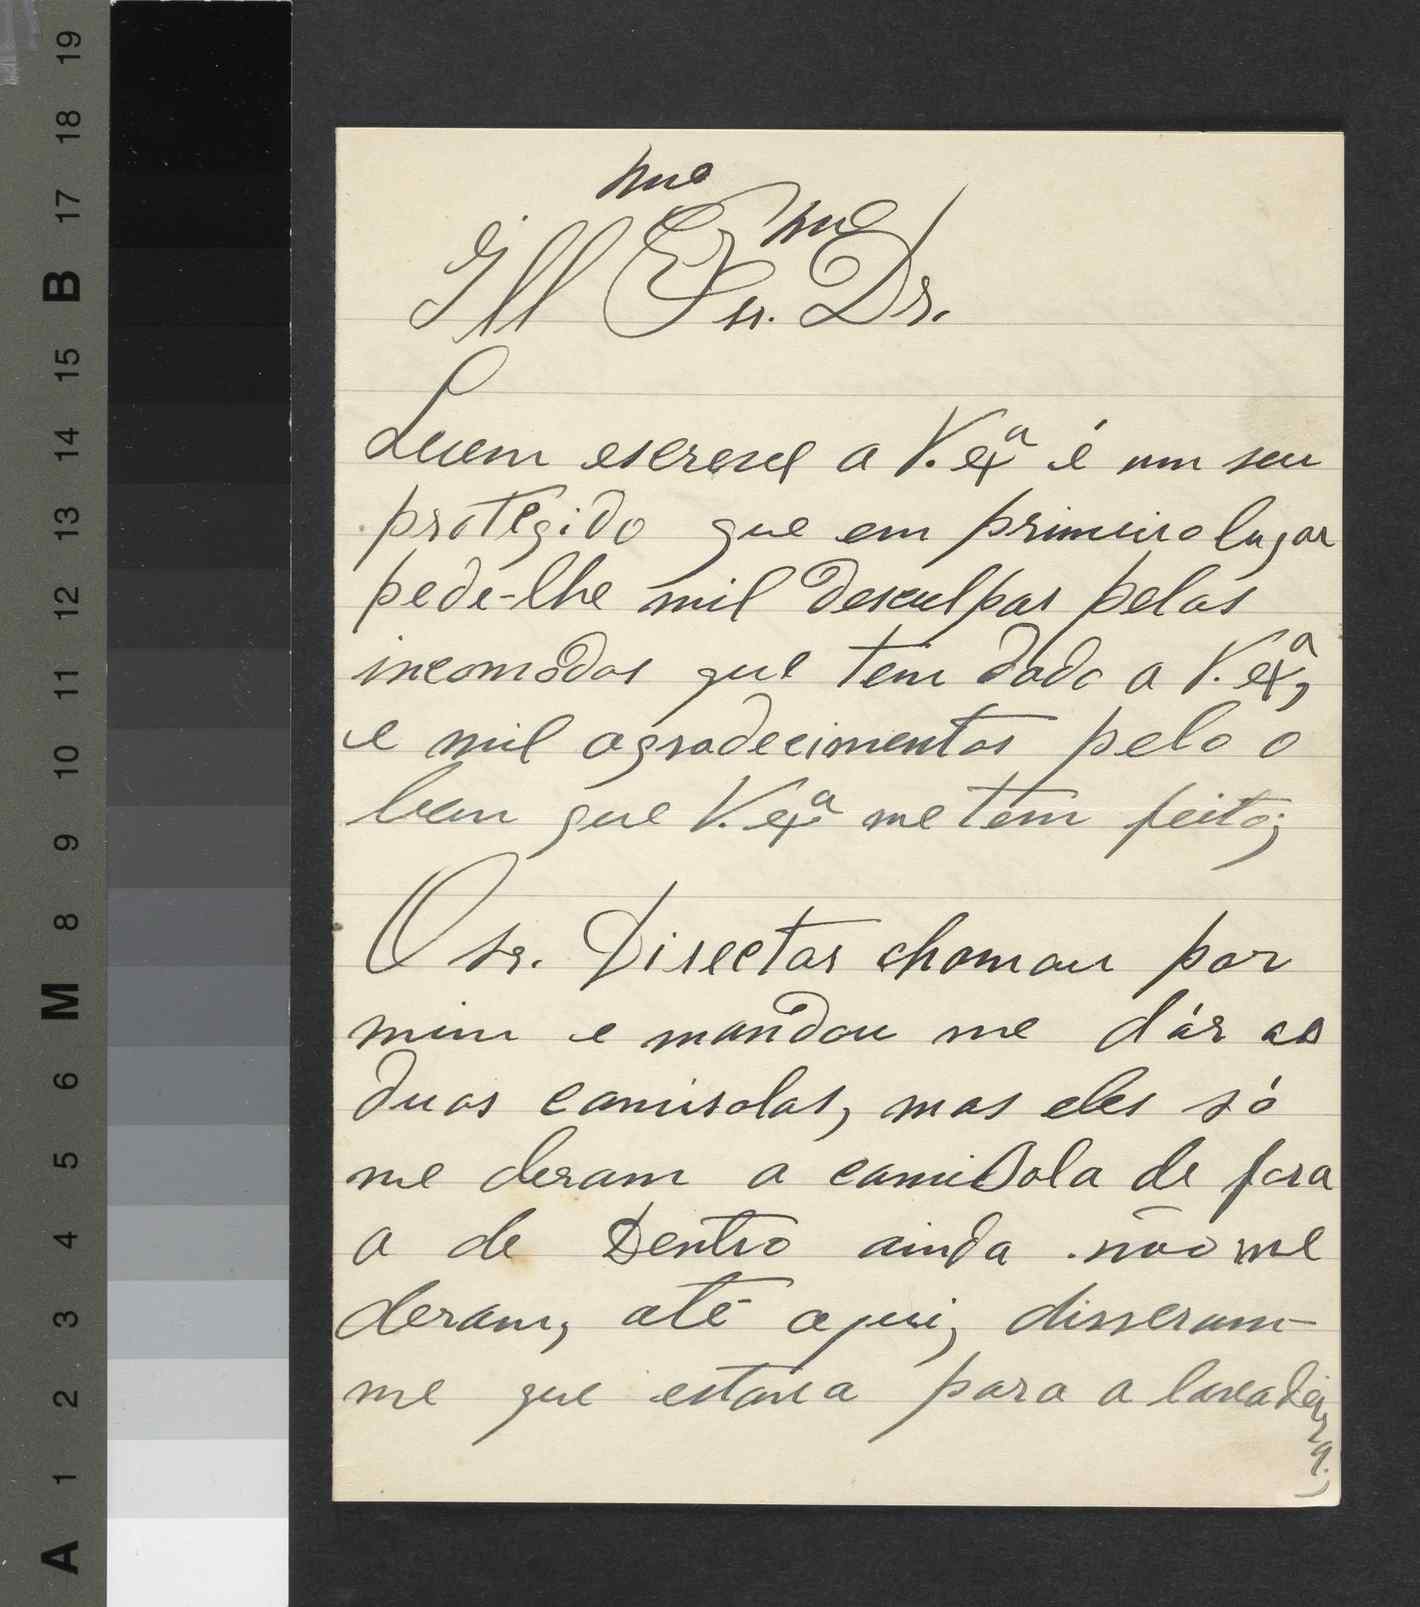 Illmo Exmo Sr. Dr.
Quem escreve a V. exª é um seu
protegido que em primeiro lugar
pede-lhe mil desculpas pelos
incomodos que tem dado a V. exª,
e mil agradecimentos pelo o
bem que V. exª me tem feito;
O Sr. Director chamou por
mim e mandou me dár as
duas camisolas, mas eles só
me deram a camisola de fora
a de Dentro ainda não me
deram, até aqui, disseram-
me que estava para a lavadeira.
19
18
17
B
15
14
13
12
11
10
9
8
M
6
5
4
3
2
1
A